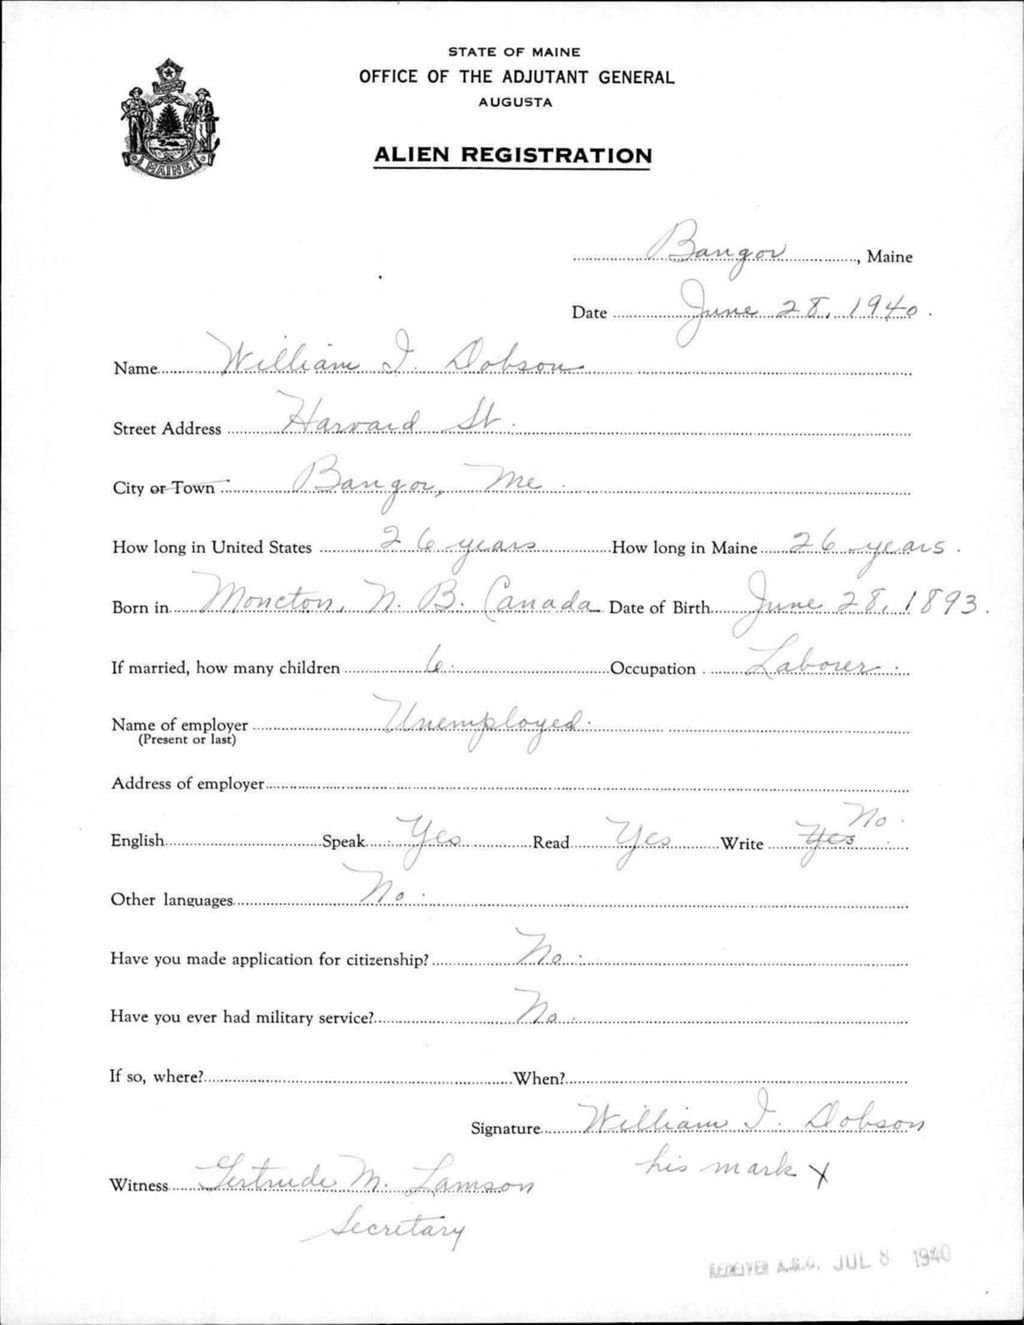 STATE OF MAINE
OFFICE OF THE ADJUTANT GENERAL
AUGUSTA
ALIEN REGISTRATION
MAINE
Bangor, Maine
Date June 28, 1940.
Name William I. Dobson
Street Address Harvard St.
City or Town Bangor, Me.
How long in United States 26 years How long in Maine 26 years.
Born in Moncton, N. B. Canada Date of Birth June 28, 1893.
If married, how many children 6. Occupation Laborer.
Name of employer Unemployed.
(Present or last)
Address of employer
English Speak Yes Read Yes Write Yes No.
Other languages No.
Have you made application for citizenship? No.
Have you ever had military service? No.
If so, where? When?
Signature William I. Dobson
his mark X
Witness Gertrude M. Lamson
Secretary
RECEIVED A.G.O. JUL 8 1940